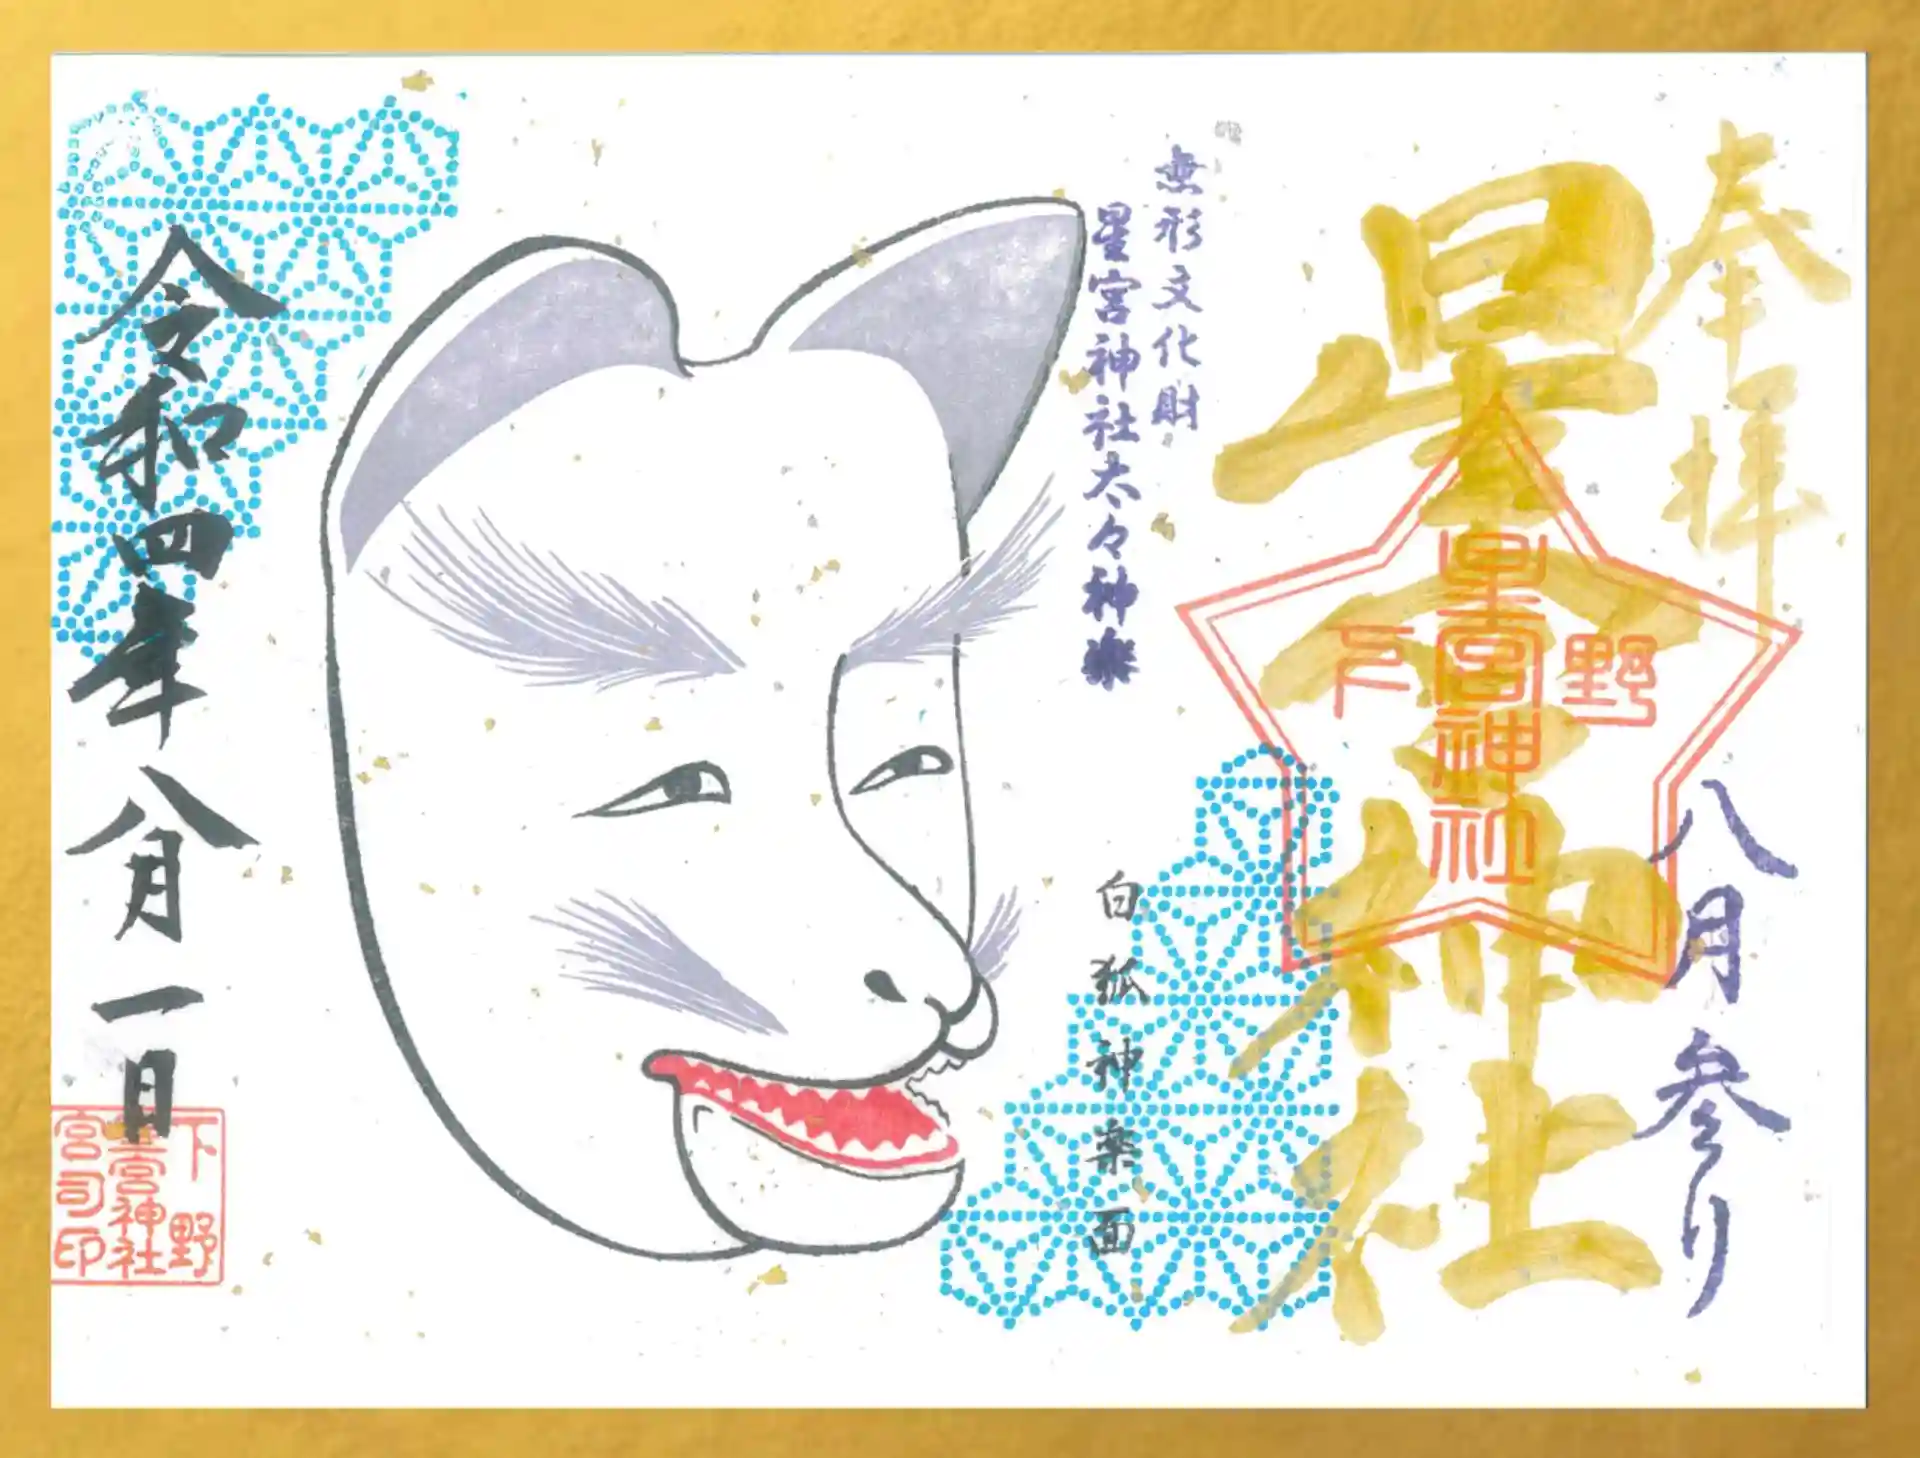 奉拝
八月参り
星宮神社
下野
星宮神社
無形文化財
星宮神社太々神楽
白狐神楽面
令和四年八月一日
下野
星宮神社
宮司印